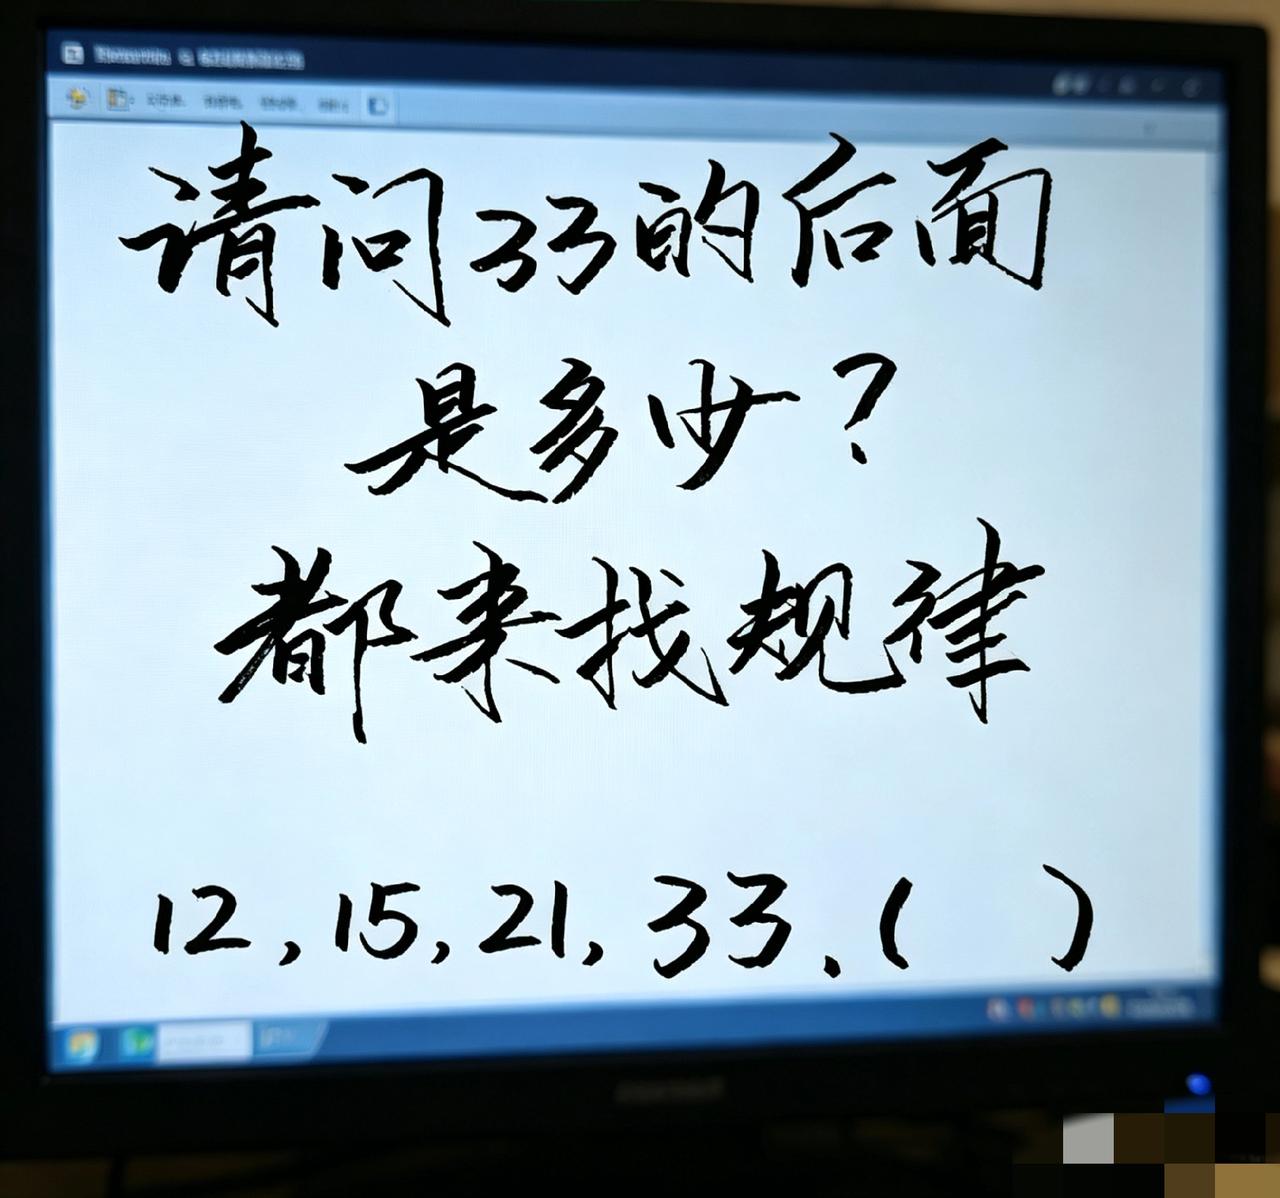 请问33的后面
是多少?
都来找规律
12,15,21,33、(  )